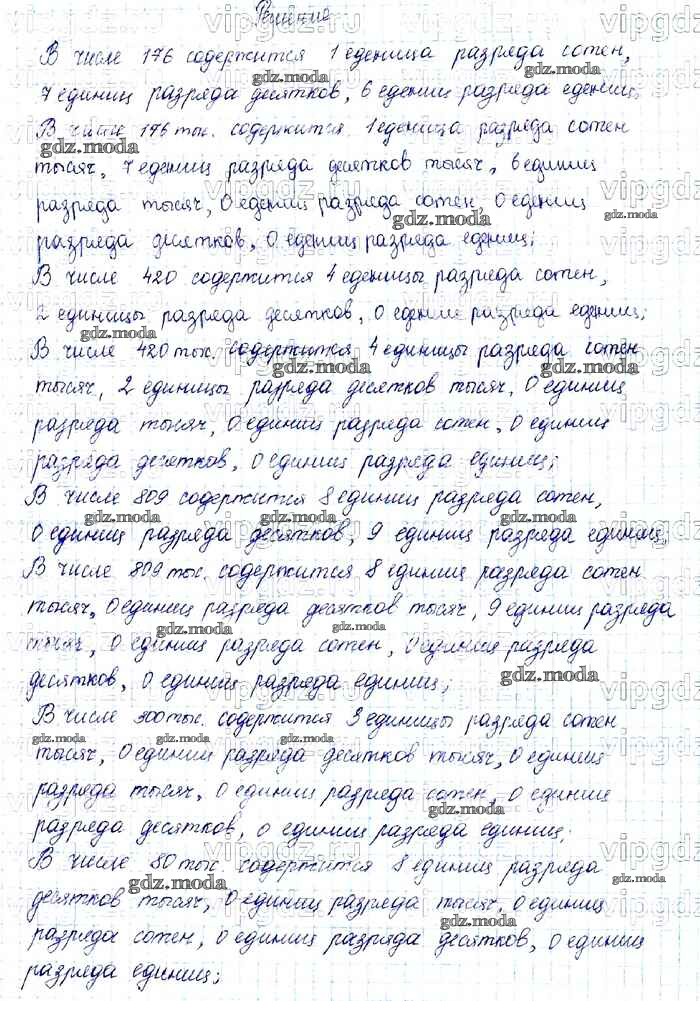 Решение
В числе 176 содержится 1 еденица разряда сотен,
7 единиц разряда десятков, 6 едениц разряда едениц;
В числе 176 тыс. содержится 1 еденица разряда сотен
тысяч, 7 едениц разряда десятков тысяч, 6 единиц
разряда тысяч, 0 едениц разряда сотен, 0 едениц
разряда десятков, 0 едениц разряда едениц;
В числе 420 содержится 4 еденицы разряда сотен,
2 единицы разряда десятков, 0 едениц разряда едениц;
В числе 420 тыс. содержится 4 единицы разряда сотен
тысяч, 2 единицы разряда десятков тысяч, 0 единиц
разряда тысяч, 0 единиц разряда сотен, 0 единиц
разряда десятков, 0 единиц разряда единиц;
В числе 809 содержится 8 единиц разряда сотен,
0 единиц разряда десятков, 9 единиц разряда единиц;
В числе 809 тыс. содержится 8 единиц разряда сотен
тысяч, 0 единиц разряда десятков тысяч, 9 единиц разряда
тысяч, 0 единиц разряда сотен, 0 единиц разряда
десятков, 0 единиц разряда единиц;
В числе 300 тыс. содержится 3 единицы разряда сотен
тысяч, 0 единиц разряда десятков тысяч, 0 единиц
разряда тысяч, 0 единиц разряда сотен, 0 единиц
разряда десятков, 0 единиц разряда единиц;
В числе 80 тыс. содержится 8 единиц разряда
десятков тысяч, 0 единиц разряда тысяч, 0 единиц
разряда сотен, 0 единиц разряда десятков, 0 единиц
разряда единиц;